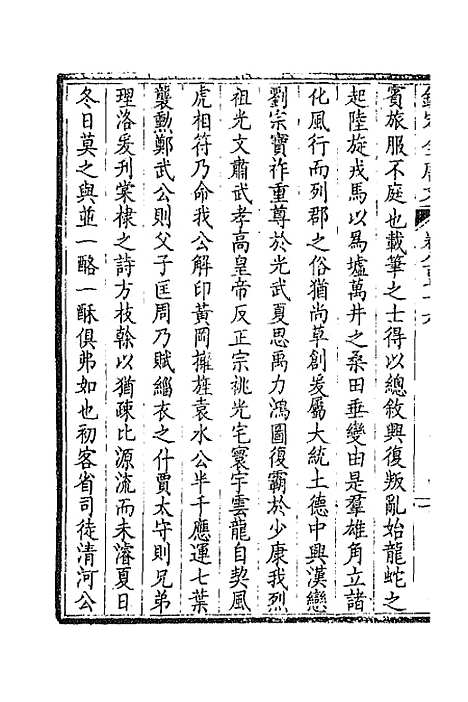 欽定全唐文 卷八百七十六
賓旅服不庭也載筆之士得以總敘興復叛亂始龍蛇之
起陸旋戎馬以為墟萬井之桑田垂變由是羣雄角立諸
化風行而列郡之俗猶尚草創爰屬大統土德中興漢戀
劉宗寶祚重尊於光武夏思禹力鴻圖復霸於少康我烈
祖光文肅武孝高皇帝反正宗祧光宅寰宇雲龍自契風
虎相符乃命我公解印黃岡擁旌袁水公半千應運七葉
襲勳鄭武公則父子匡周乃賦緇衣之什賈太守則兄弟
理洛爰刊棠棣之詩方枝榦以猶疎比源流而未濬夏日
冬日莫之與並一酪一酥俱弗如也初客省司徒清河公